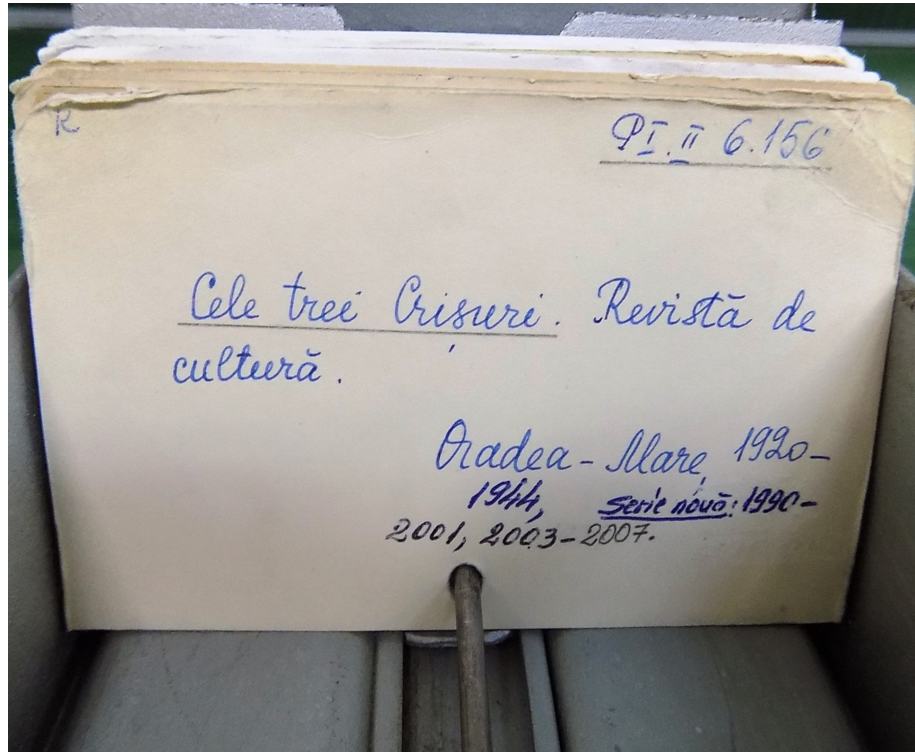 R
PI.II 6.156
Cele trei Crișuri. Revistă de
cultură.
Oradea-Mare, 1920-
1944, Serie nouă: 1990-
2001, 2003-2007.